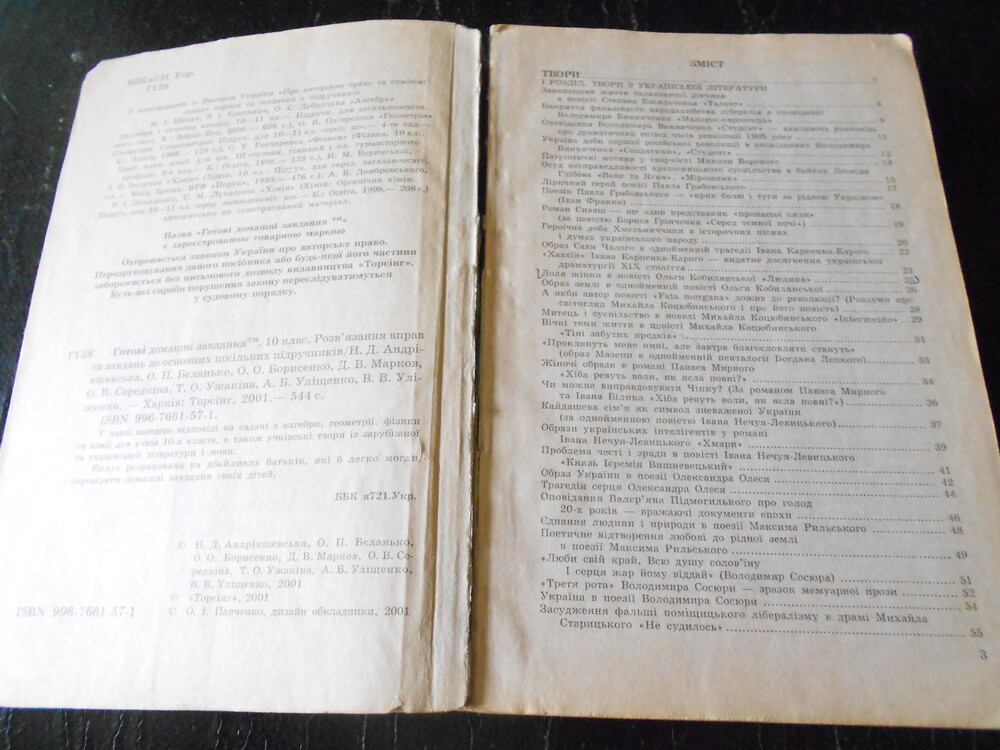 ББК я721 Укр.
Г138
Назва «Готові домашні завдання ™»
є зареєстрованою товарною маркою
Охороняється законом України про авторське право.
Передруковування даного посібника або будь-якої його частини
забороняється без письмового дозволу видавництва «Торсінг».
Будь-які спроби порушення закону переслідуватимуться
у судовому порядку.
Г138 Готові домашні завдання™. 10 клас. Розв'язання вправ
та завдань до основних шкільних підручників/Н. Д. Андрі-
яшевська, О. П. Бєланько, О. О. Борисенко, Д. В. Марков,
О. В. Середкіна, Т. О. Ужакіна, А. Б. Уліщенко, В. В. Улі-
щенко. — Харків: Торсінг, 2001.— 544 с.
ISBN 996-7661-57-1.
У книзі наведено відповіді на задачі з алгебри, геометрії, фізики
та хімії для учнів 10-х класів, а також учнівські твори із зарубіжної
та української літератури і мови.
Книга розрахована на дбайливих батьків, які б легко могли
перевірити домашні завдання своїх дітей.
ББК я721.Укр.
© Н. Д. Андріяшевська, О. П. Бєланько,
О. О. Борисенко, Д. В. Марков, О. В. Се-
редкіна, Т. О. Ужакіна, А. Б. Уліщенко,
В. В. Уліщенко, 2001
© «Торсінг», 2001
ISBN 996-7661-57-1 © О. І. Панченко, дизайн обкладинки, 2001
ЗМІСТ
ТВОРИ
І РОЗДІЛ. ТВОРИ З УКРАЇНСЬКОЇ ЛІТЕРАТУРИ
Занапащене життя талановитої дівчини
в повісті Степана Васильченка «Талант» 8
Викриття фальшивого народолюбства лібералів в оповіданні
Володимира Винниченка «Малорос-європеєць»
Оповідання Володимира Винниченка «Студент» — хвилююча розповідь
про драматичний епізод часів революції 1905 року
Україна доби першої російської революції в оповіданнях Володимира
Винниченка «Солдатики», «Студент» 12
Патріотичні мотиви у творчості Миколи Вороного 13
Осуд несправедливості кріпосницького суспільства в байках Леоніда
Глібова «Вовк та Ягня», «Мірошник»
Ліричний герой поезії Павла Грабовського
Поезія Павла Грабовського — «крик болю і туги за рідною Україною»
(Іван Франко) 18
Роман Сиваш — ще один представник «пропащої сили»
(за повістю Бориса Грінченка «Серед темної ночі»)
Героїчна доба Хмельниччини в історичних піснях
і думах українського народу 20
Образ Сави Чалого в однойменній трагедії Івана Карпенка-Карого 22
«Хазяїн» Івана Карпенка-Карого — видатне досягнення української
драматургії XIX століття 23
Доля жінки в повісті Ольги Кобилянської «Людина»
Образ землі в однойменній повісті Ольги Кобилянської 26
А якби автор повісті «Fata morgana» дожив до революції? (Роздуми про
світогляд Михайла Коцюбинського і про його повість) 28
Митець і суспільство в новелі Михайла Коцюбинського «Intermezzo» 29
Вічні теми життя в повісті Михайла Коцюбинського
«Тіні забутих предків» 31
«Проклянуть мене нині, але завтра благословляти стануть»
(образ Мазепи в однойменній пенталогії Богдана Лепкого) 33
Жіночі образи в романі Панаса Мирного
«Хіба ревуть воли, як ясла повні?» 34
Чи можна виправдовувати Чіпку? (За романом Панаса Мирного
та Івана Білика «Хіба ревуть воли, як ясла повні?») 36
Кайдашева сім'я як символ зневаженої України
(за однойменною повістю Івана Нечуя-Левицького) 37
Образи українських інтелігентів у романі
Івана Нечуя-Левицького «Хмари» 39
Проблема честі і зради в повісті Івана Нечуя-Левицького
«Князь Ієремія Вишневецький» 41
Образ України в поезії Олександра Олеся 42
Трагедія серця Олександра Олеся 44
Оповідання Валер'яна Підмогильного про голод
20-х років — вражаючі документи епохи 46
Єднання людини і природи в поезії Максима Рильського 48
Поетичне відтворення любові до рідної землі
в поезії Максима Рильського 49
«Люби свій край, Всю душу солов'їну
І серця жар йому віддай» (Володимир Сосюра) 51
«Третя рота» Володимира Сосюри — зразок мемуарної прози 52
Україна в поезії Володимира Сосюри 54
Засудження фальші поміщицького лібералізму в драмі Михайла
Старицького «Не судилось» 55
3